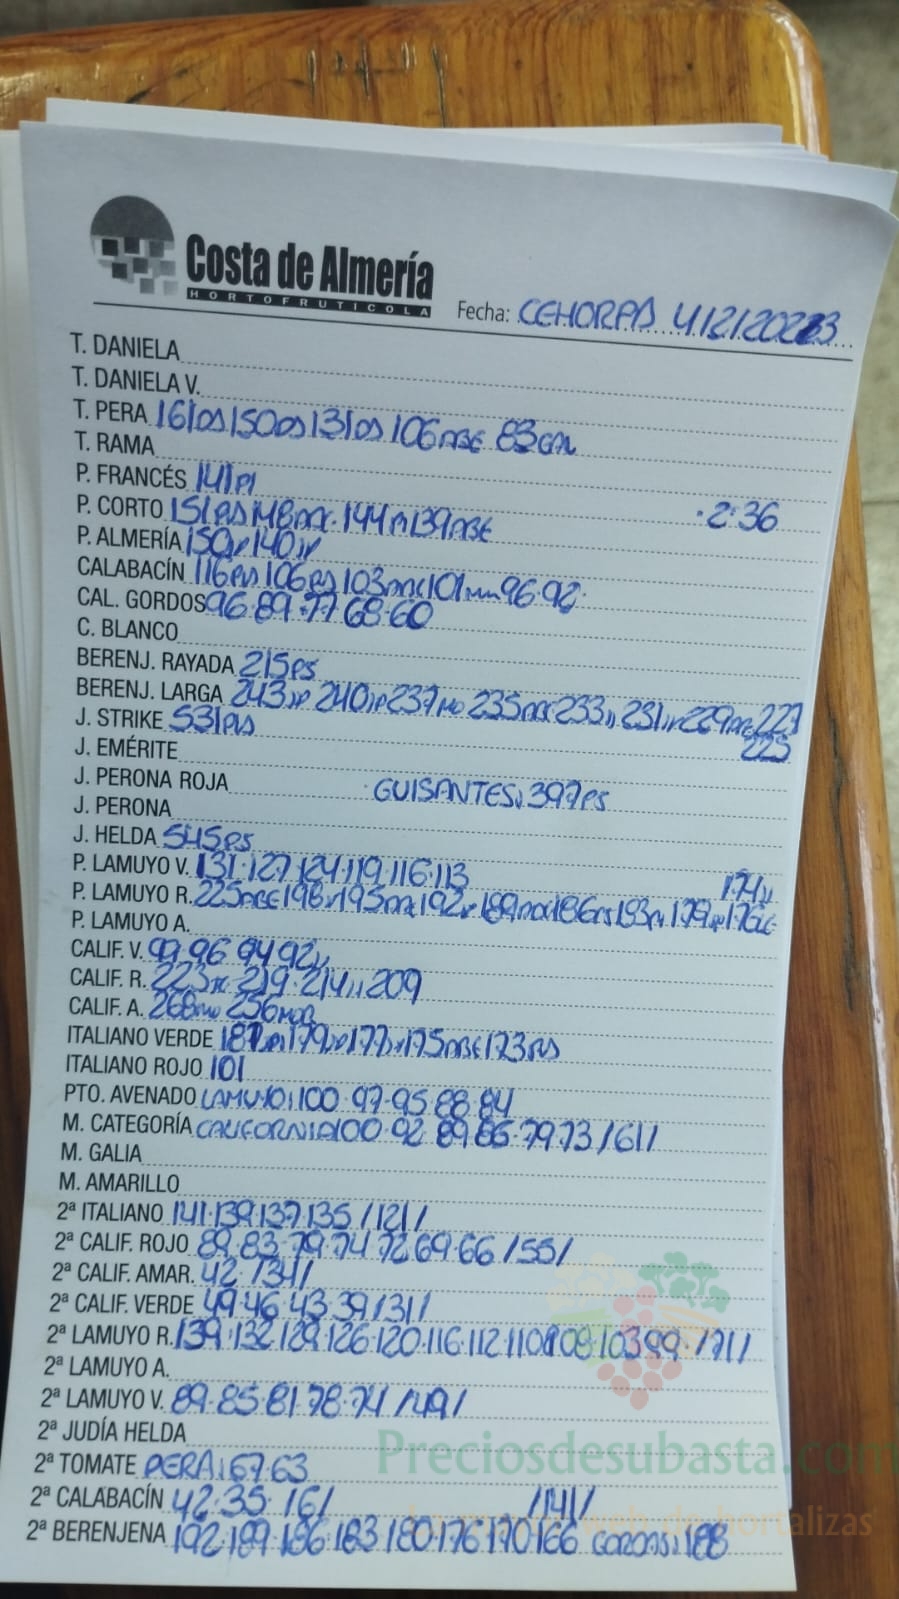 Costa de Almería
HORTOFRUTICOLA
Fecha: CEHORPA 4/12/2023
T. DANIELA
T. DANIELA V.
T. PERA 161 DS 150 DS 131 DS 106 ABE 83 GAL
T. RAMA
P. FRANCÉS 141 PI
P. CORTO 151 PAS 148 144 139 ABE · 2:36
P. ALMERÍA 150 140
CALABACÍN 116 106 103 101 96·92·
CAL. GORDOS 96·89·77·68·60
C. BLANCO
BERENJ. RAYADA 215 PS
BERENJ. LARGA 243 240 237 235 233 231 229 227
J. STRIKE 531 PAS 225
J. EMÉRITE
J. PERONA ROJA · GUISANTES: 397 PS
J. PERONA
J. HELDA 545 PS
P. LAMUYO V. 131·127·124·119·116·113 174
P. LAMUYO R. 225 ABE 198 195 192 189 186 183 179 176
P. LAMUYO A.
CALIF. V. 99 96 94 92
CALIF. R. 223 219·214 209
CALIF. A. 268 256
ITALIANO VERDE 181 179 177 175 ABE 173 PAS
ITALIANO ROJO 101
PTO. AVENADO LAMUYO: 100·97·95 88·84
M. CATEGORÍA CALIFORNIA 100·92 89·86·79·73 /61/
M. GALIA
M. AMARILLO
2ª ITALIANO 141·139·137·135 /121/
2ª CALIF. ROJO 89·83·79·74 72 69·66 /55/
2ª CALIF. AMAR. 42·/34/
2ª CALIF. VERDE 49·46·43·39 /31/
2ª LAMUYO R. 139·132·129·126·120·116·112·110 108·103 99·/71/
2ª LAMUYO A.
2ª LAMUYO V. 89·85·81·78·74 /49/
2ª JUDÍA HELDA
2ª TOMATE PERA: 67·63
Preciosdesubasta.com
2ª CALABACÍN 42·35· /6/ /141/
web de hortalizas
2ª BERENJENA 192·189·186·183·180·176·170·166 GORDAS: 188